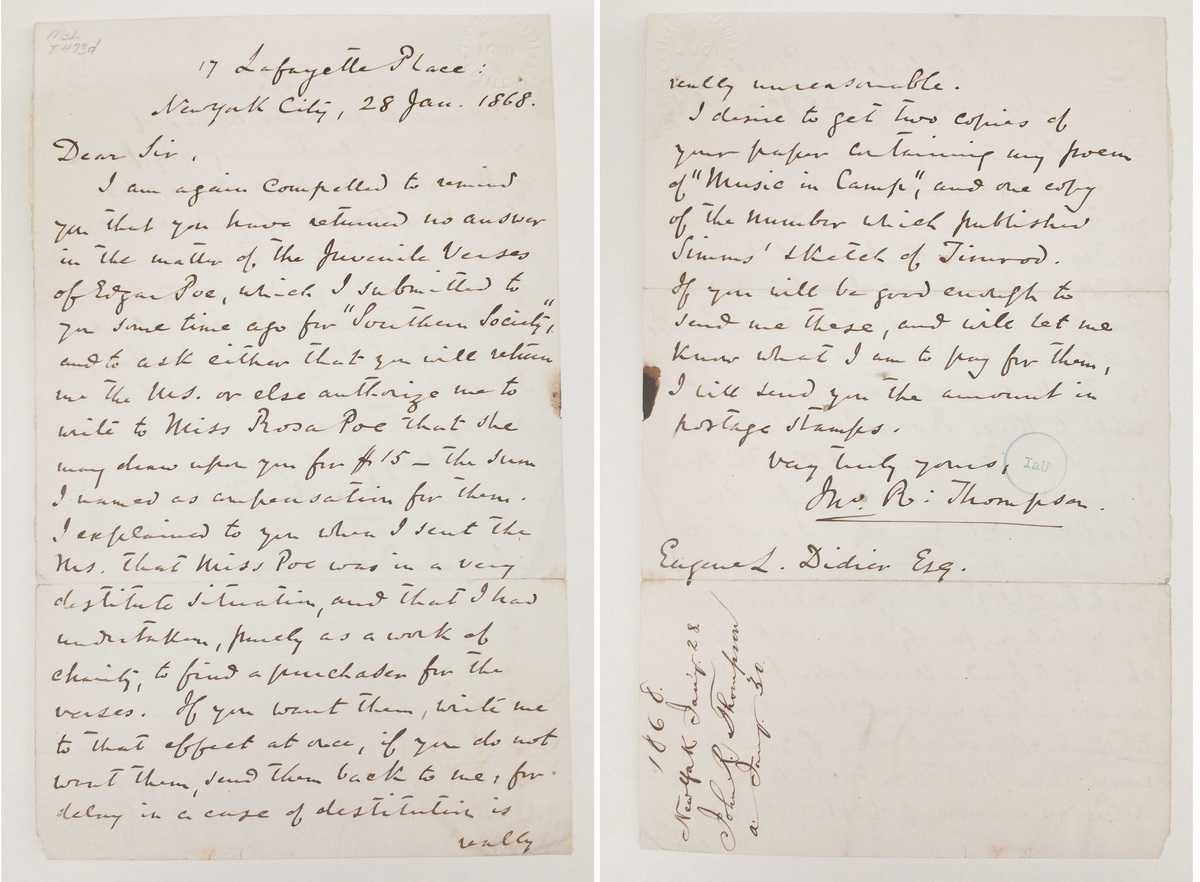 MsL
T473d
17 Lafayette Place:
New York City, 28 Jan. 1868.
Dear Sir,
I am again compelled to remind
you that you have returned no answer
in the matter of the Juvenile Verses
of Edgar Poe, which I submitted to
you some time ago for "Southern Society",
and to ask either that you will return
me the MS. or else authorize me to
write to Miss Rosa Poe that she
may draw upon you for $15 — the sum
I named as compensation for them.
I explained to you when I sent the
MS. that Miss Poe was in a very
destitute situation, and that I had
undertaken, purely as a work of
charity, to find a purchaser for the
verses. If you want them, write me
to that effect at once, if you do not
want them, send them back to me, for
delay in a case of destitution is
really
really unreasonable.
I desire to get two copies of
your paper containing my poem
of "Music in Camp", and one copy
of the number which published
Simms' sketch of Timrod.
If you will be good enough to
send me these, and will let me
know what I am to pay for them,
I will send you the amount in
postage stamps.
Very truly yours,
IaU
Jno. R. Thompson.
Eugene L. Didier Esq.
1868.
New York Jan'y 28
John R. Thompson
a. Jany. 30.